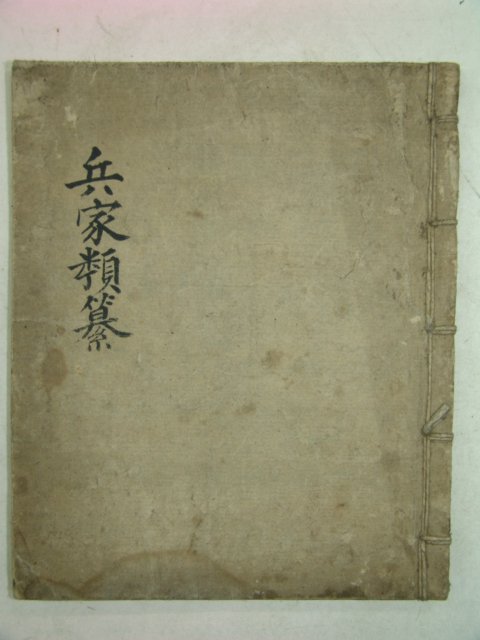 兵家類纂